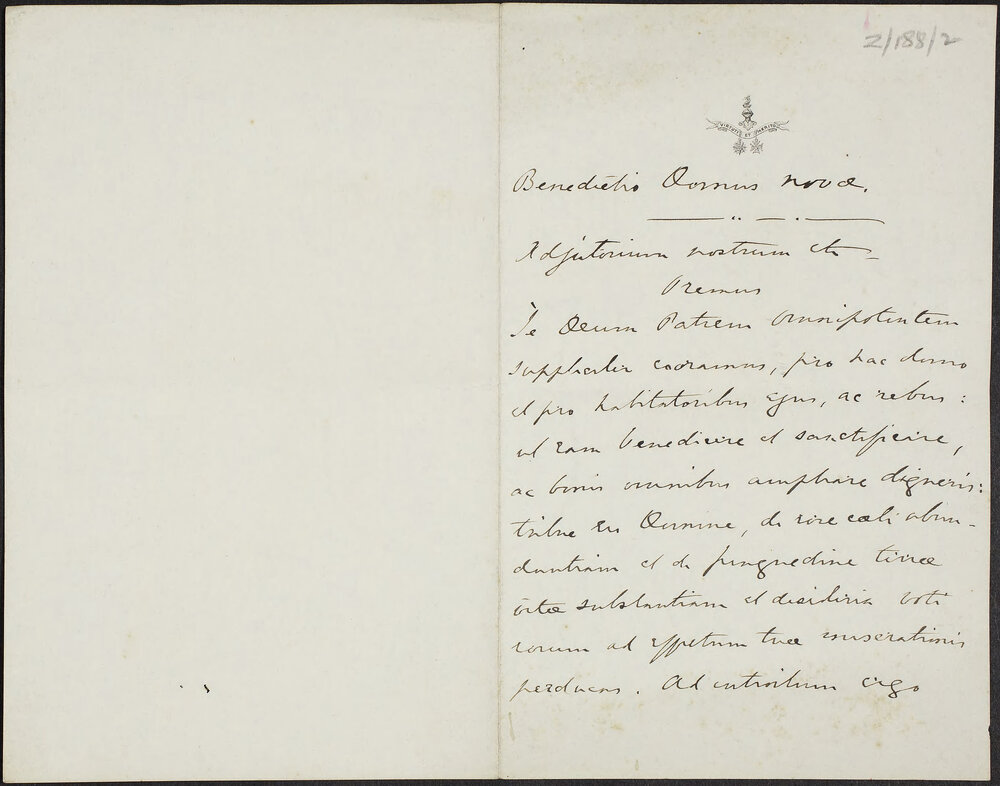 Z/188/2
VIRTUTE ET
Benedictio Domus novæ.
Adjutorium nostrum etc
Oremus
Te Deum Patrem Omnipotentem
suppliciter exoramus, pro hac domo
et pro habitatoribus ejus, ac rebus:
ut eam benedicere et sanctificare,
ac bonis omnibus ampliare digneris:
tribue eis Domine, de rore cœli abun-
dantiam et de pinguedine terræ
vitæ substantiam et desideria voti
eorum ad effectum tuæ miserationis
perducas. Ad introitum ergo